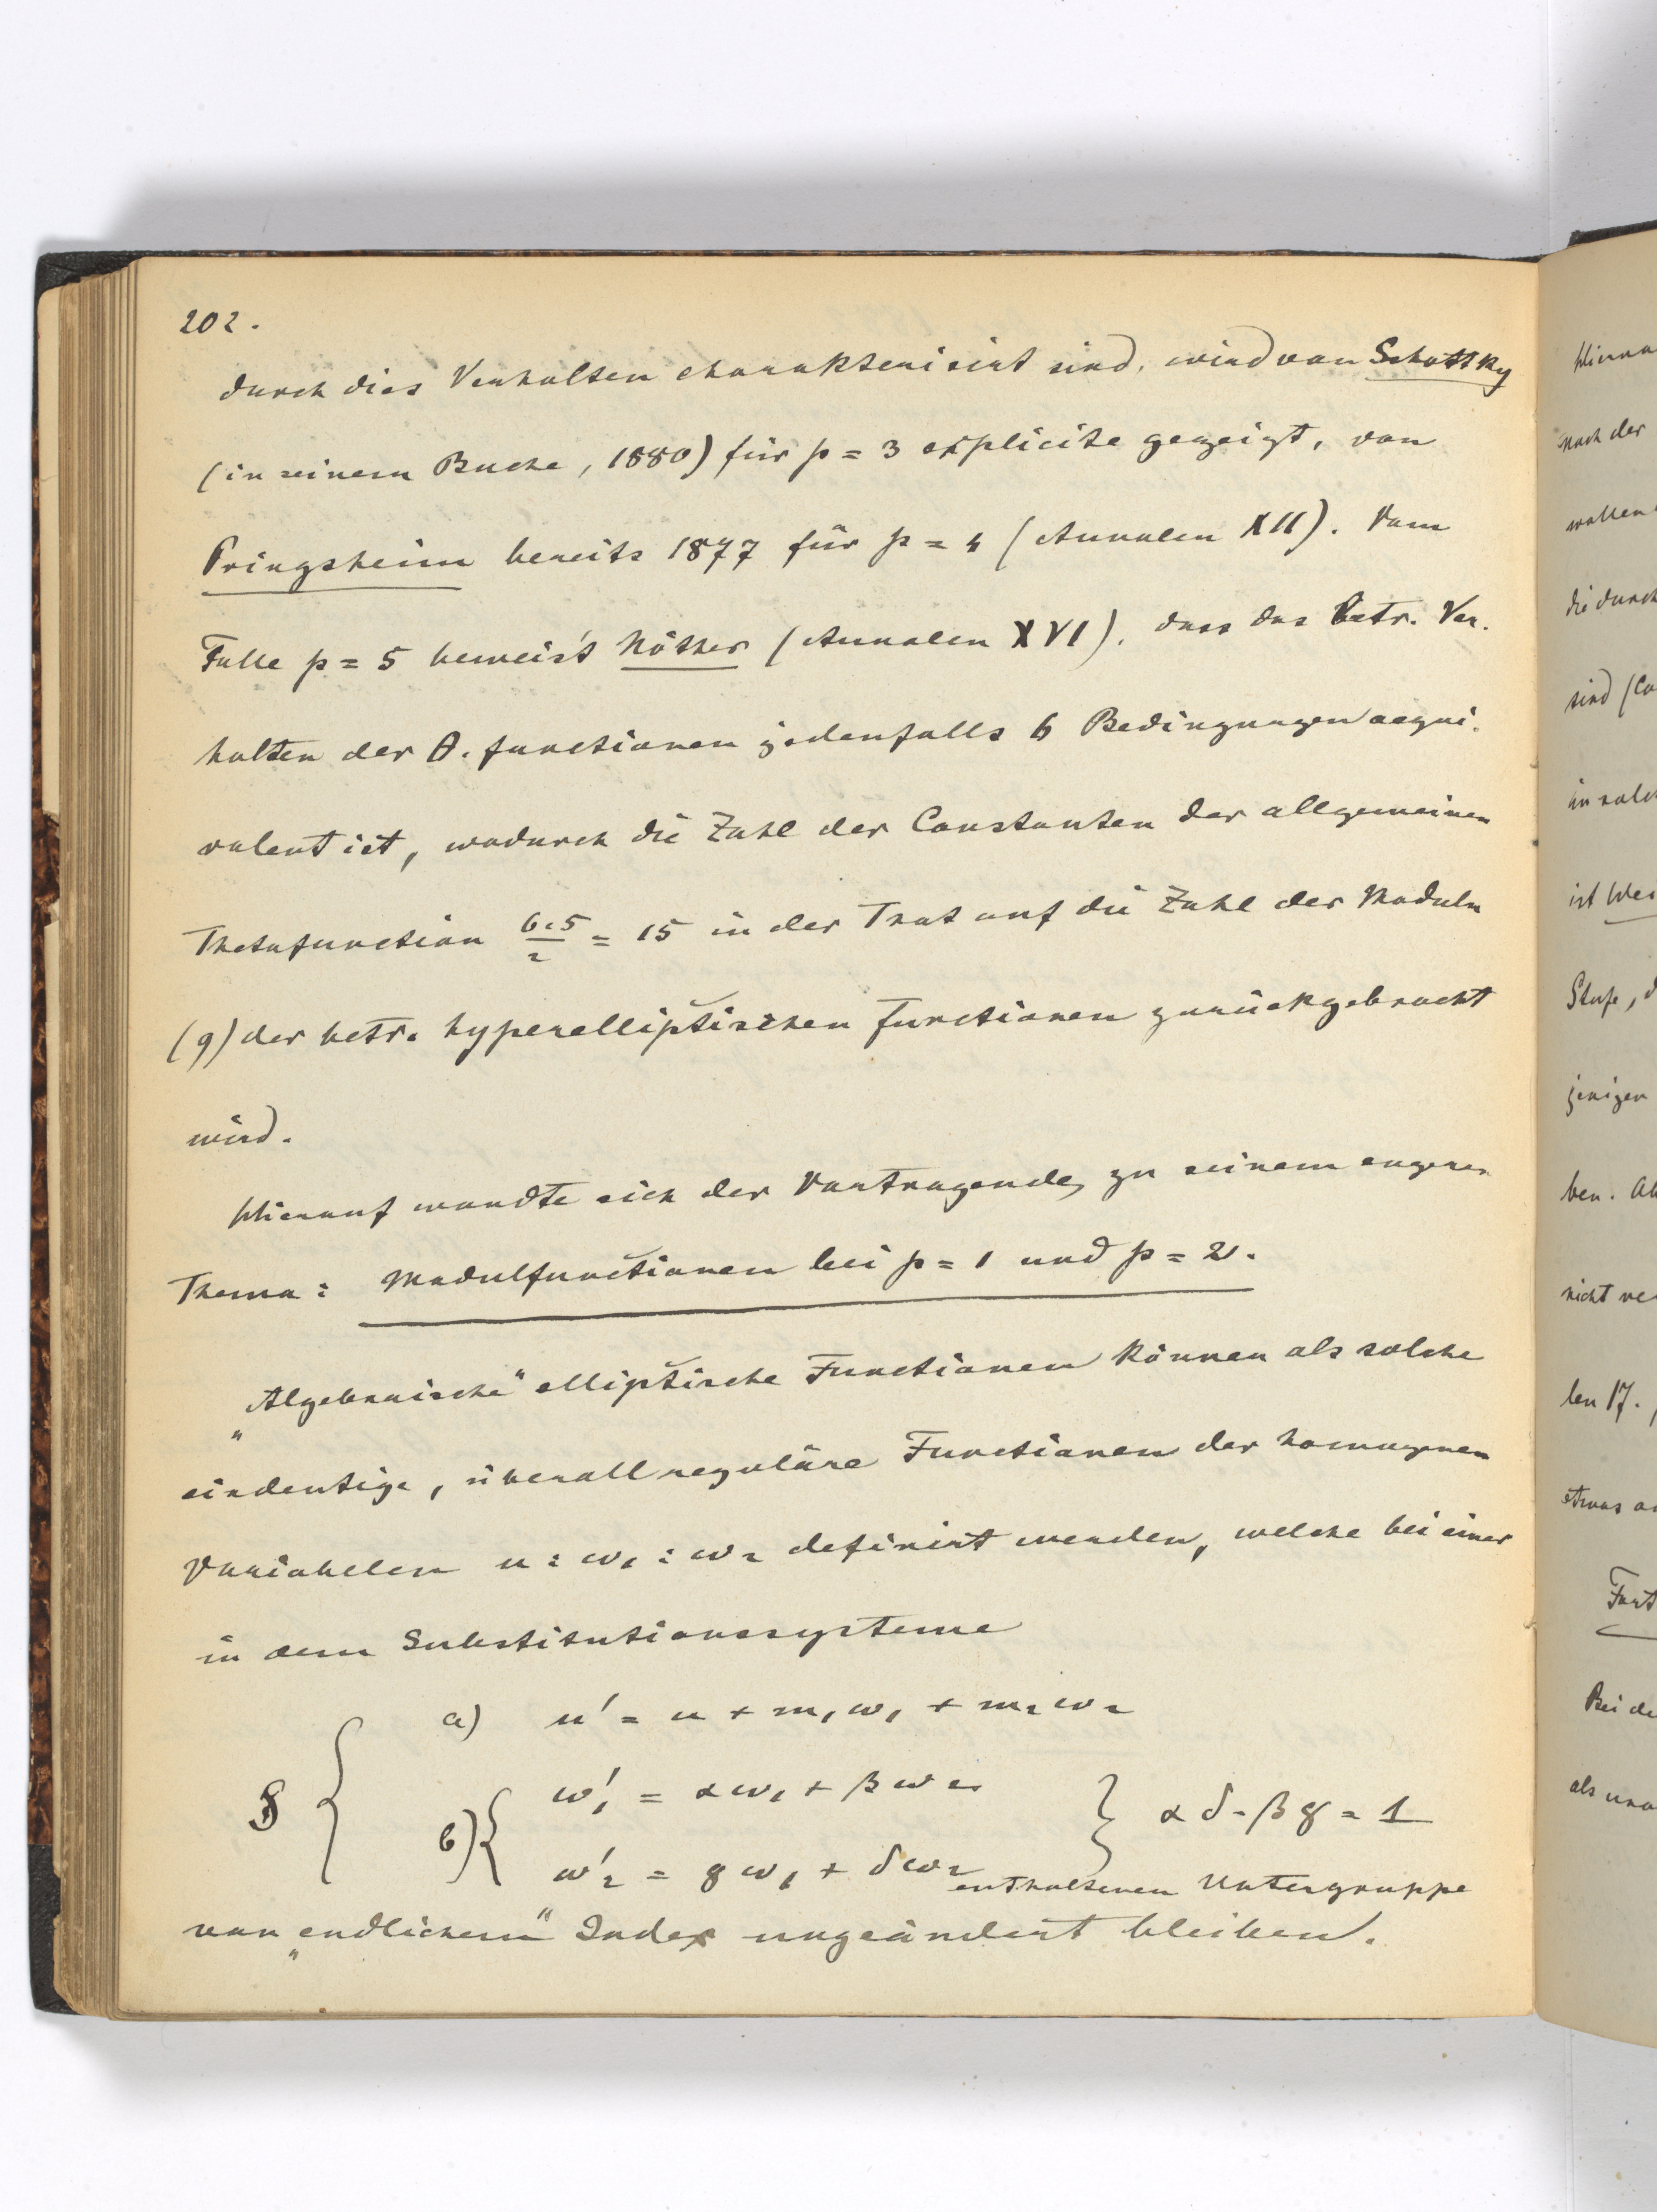 202.
durch dies Verhalten charakterisirt sind, wird von Schottky
(in seinem Buche, 1880) für p = 3 explicite gezeigt, von
Pringsheim bereits 1877 für p = 4 (Annalen XII). Vom
Falle p = 5 beweist Nöther (Annalen XVI), dass das betr. Ver-
halten der θ-functionen jedenfalls 6 Bedingungen aequi-
valent ist, wodurch die Zahl der Constanten der allgemeinen
Thetafunction 6·5/2 = 15 in der That auf die Zahl der Moduln
(9) der betr. hyperelliptischen Functionen zurückgebracht
wird.
Hierauf wandte sich der Vortragende zu seinem engeren
Thema: Modulfunctionen bei p = 1 und p = 2.
„Algebraische“ elliptische Functionen können als solche
eindeutige, überall reguläre Functionen der homogenen
Variabelen u : ω₁ : ω₂ definirt werden, welche bei einer
in dem Substitutionssysteme
a) u' = u + m₁ω₁ + m₂ω₂
b) { ω'₁ = αω₁ + βω₂
ω'₂ = γω₁ + δω₂ } αδ - βγ = 1
enthaltenen Untergruppe
von „endlichem“ Index ungeändert bleiben.
Hierna
nach der
wollen
die durch
sind (Co
in solch
ist Wei
Stufe, d
jenigen
ben. Al
nicht ve
len 17.
etwas a
Fort
Bei de
als una